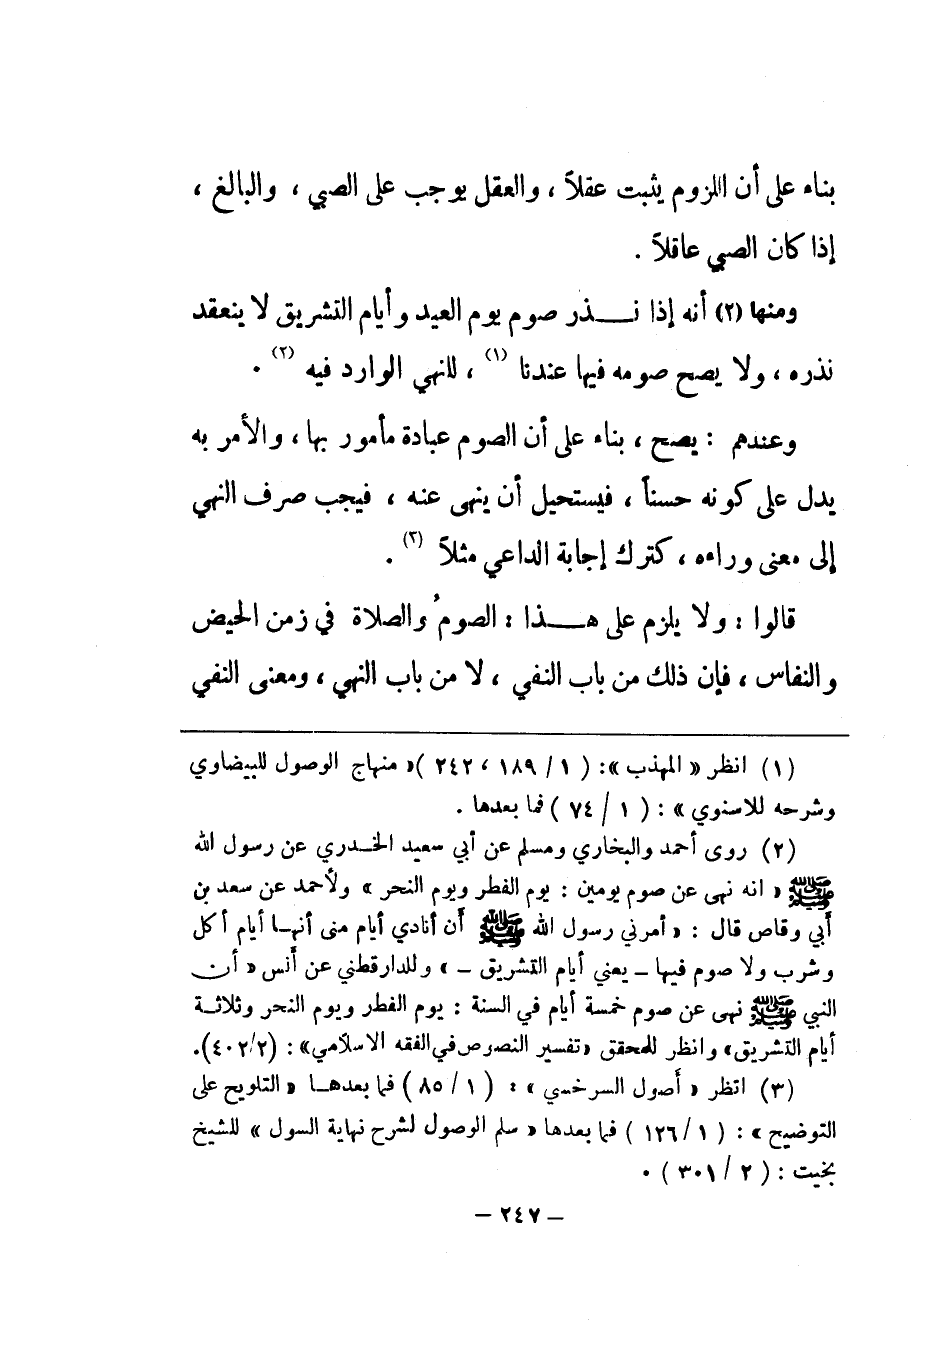 بناء على أن اللزوم يثبت عقلاً ، والعقل يوجب على الصبي ، والبالغ ،
إذا كان الصبي عاقلاً .
ومنها (٢) أنه إذا نـــذر صوم يوم العيد وأيام التشريق لا ينعقد
نذره ، ولا يصح صومه فيها عندنا (١) ، للنهي الوارد فيه (٢) .
وعندهم : يصح ، بناء على أن الصوم عبادة مأمور بها ، والأمر به
يدل على كونه حسناً ، فيستحيل أن ينهى عنه ، فيجب صرف النهي
إلى معنى وراءه ، كترك إجابة الداعي مثلاً (٣) .
قالوا : ولا يلزم على هـــذا : الصومُ والصلاة في زمن الحيض
والنفاس ، فإن ذلك من باب النفي ، لا من باب النهي ، ومعنى النفي
(١) انظر « المهذب »: ( ١ / ١٨٩ ، ٢٤٢ )« منهاج الوصول للبيضاوي
وشرحه للاسنوي » : ( ١ / ٧٤ ) فما بعدها .
(٢) روى أحمد والبخاري ومسلم عن أبي سعيد الخـدري عن رسول الله
ﷺ « انه نهى عن صوم يومين : يوم الفطر ويوم النحر » ولأحمد عن سعد بن
أبي وقاص قال : « أمرني رسول الله ﷺ أن أنادي أيام منى أنهـا أيام أكل
وشرب ولا صوم فيها ـ يعني أيام التشريق ـ » وللدارقطني عن أنس « أن
النبي ﷺ نهى عن صوم خمسة أيام في السنة : يوم الفطر ويوم النحر وثلاثـة
أيام التشريق» وانظر للمحقق «تفسير النصوص في الفقه الاسلامي» : (٤٠٢/٢).
(٣) انظر « أصول السرخسي » : ( ١ / ٨٥ ) فما بعدهـا « التلويح على
التوضيح » : ( ١ / ١٢٦ ) فما بعدها « سلم الوصول لشرح نهاية السول » للشيخ
بخيت : ( ٢ / ٣٠١ ) .
– ٢٤٧ –